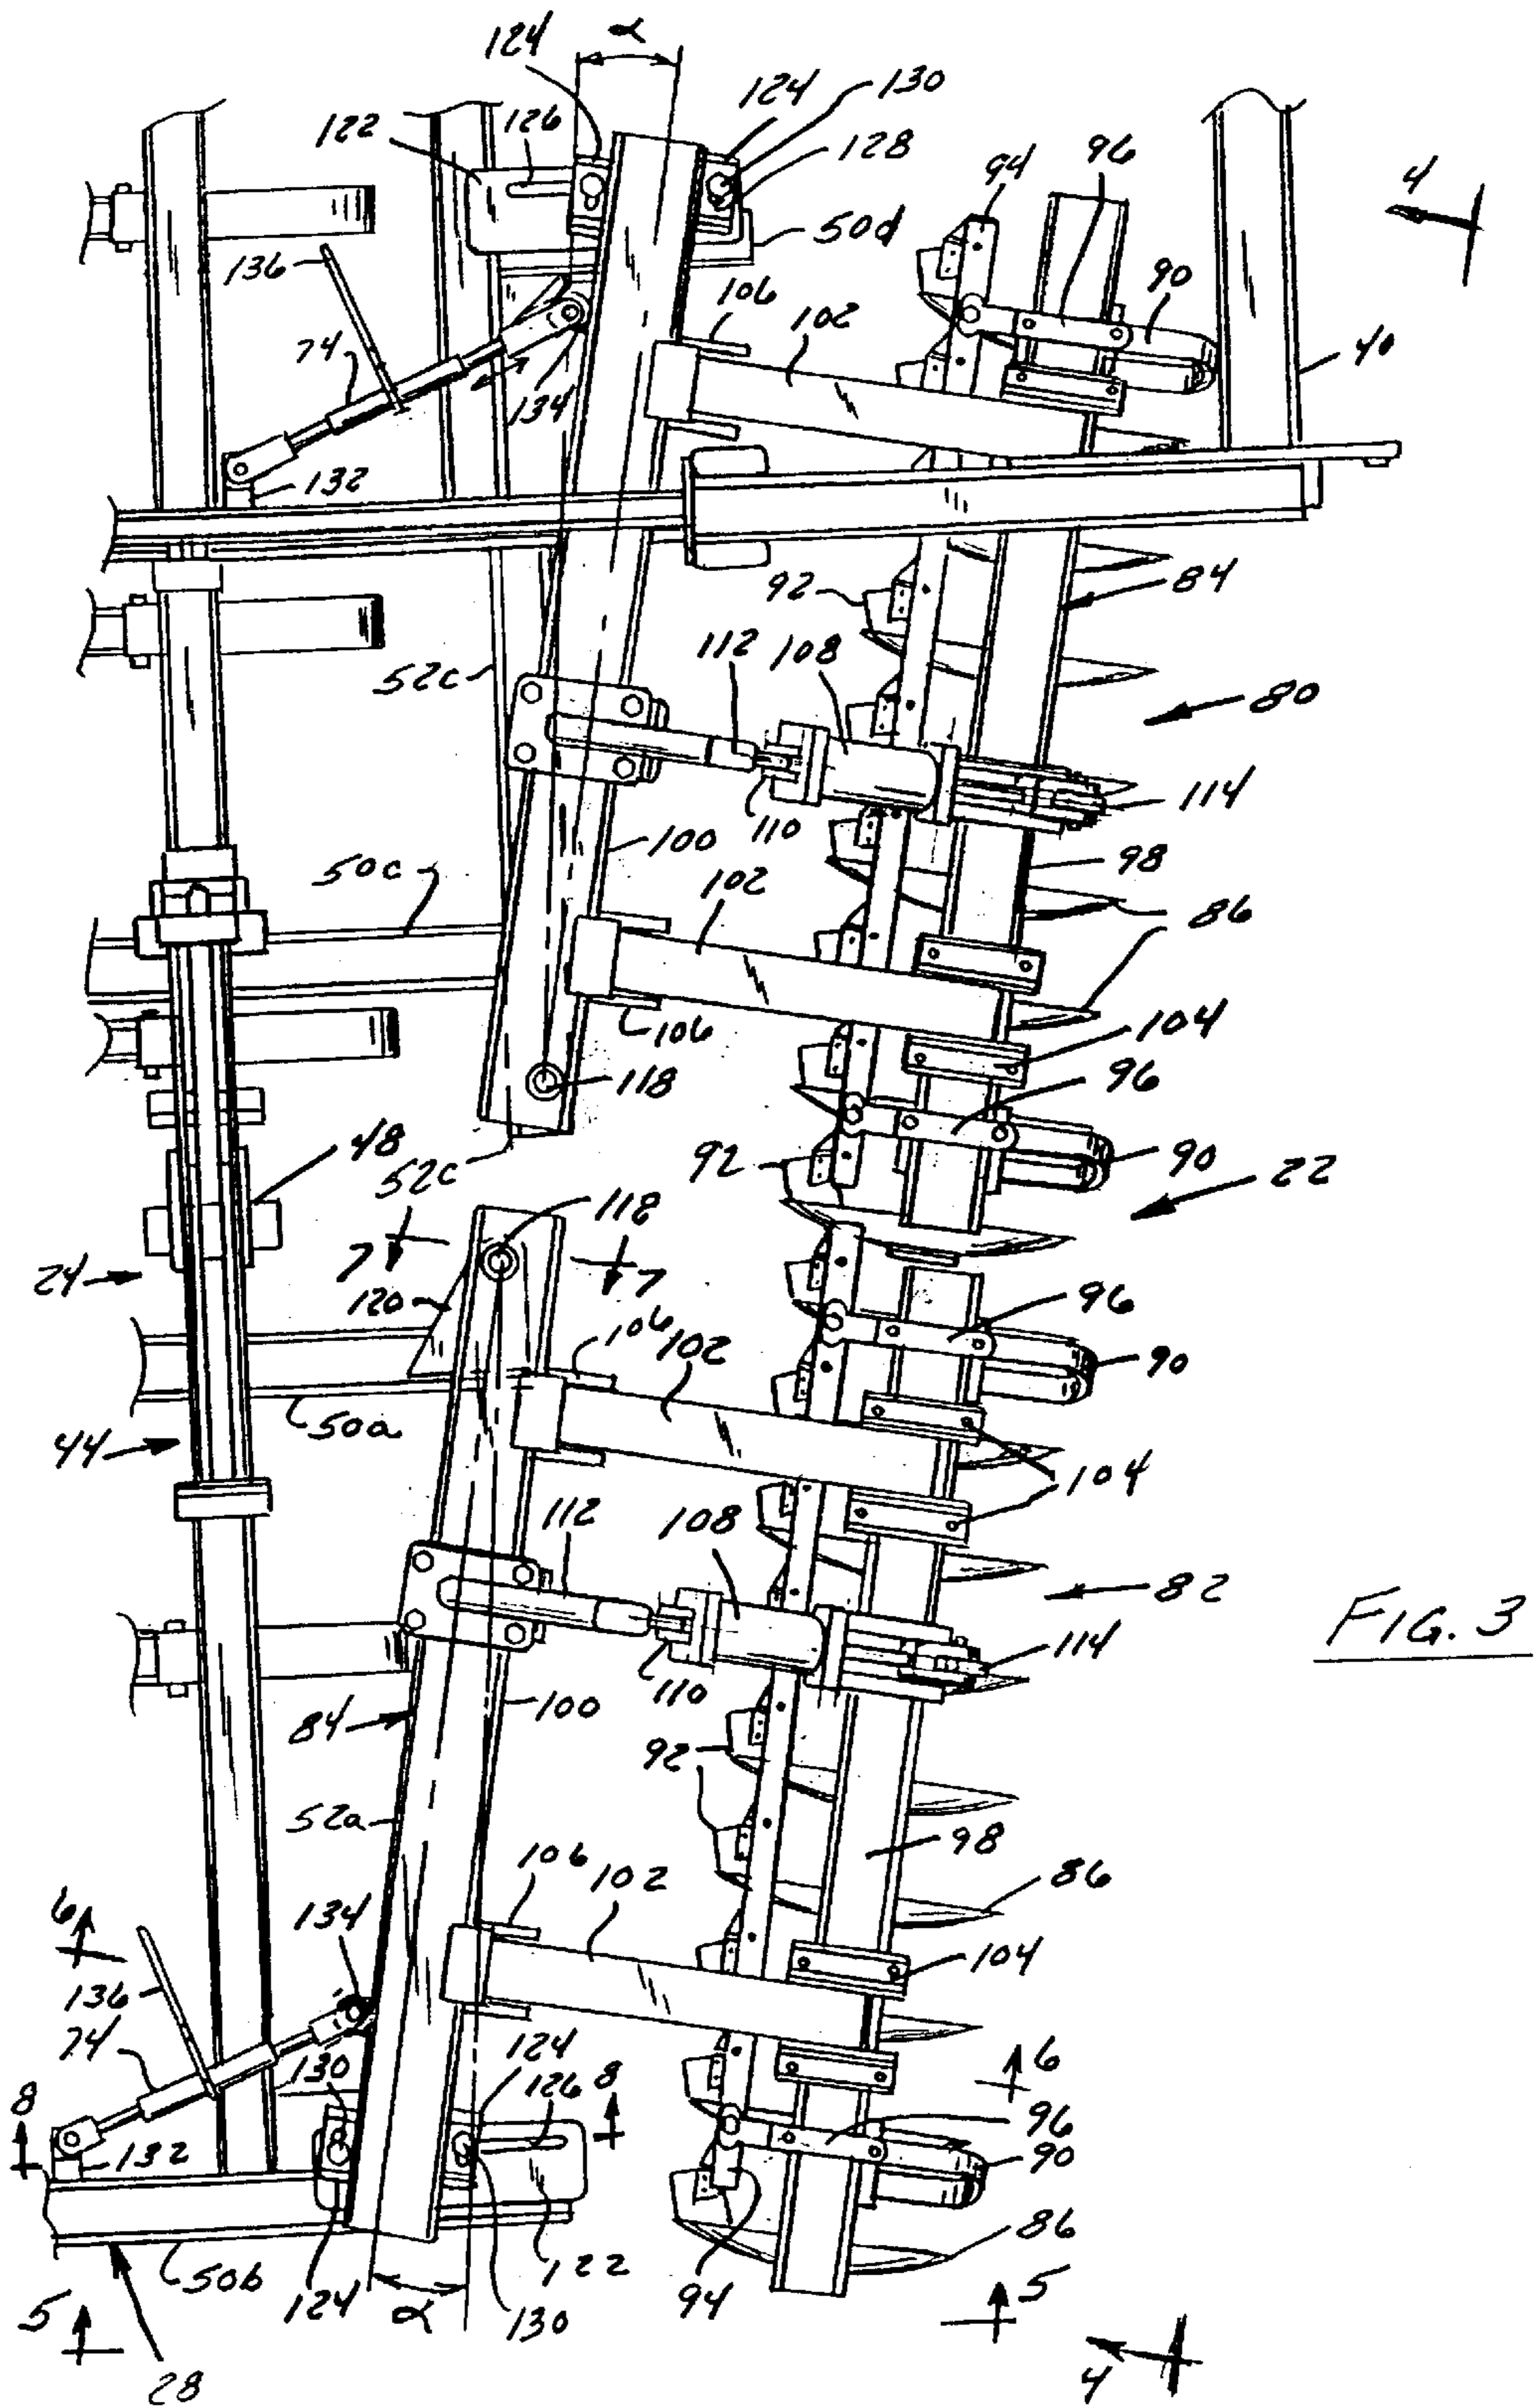 α
124
124
130
122
126
128
94
96
4
50d
136
106
102
90
74
40
134
132
92
84
52c
112
108
80
110
114
50c
100
98
102
86
106
104
118
96
48
92
90
52c
22
118
7
7
24
120
96
106
102
90
50a
44
104
112
108
82
FIG. 3
114
110
100
84
92
52a
98
106
102
86
6
134
104
136
74
130
124
126
8
6
8
96
132
90
86
122
50b
124
94
5
α
130
5
28
4